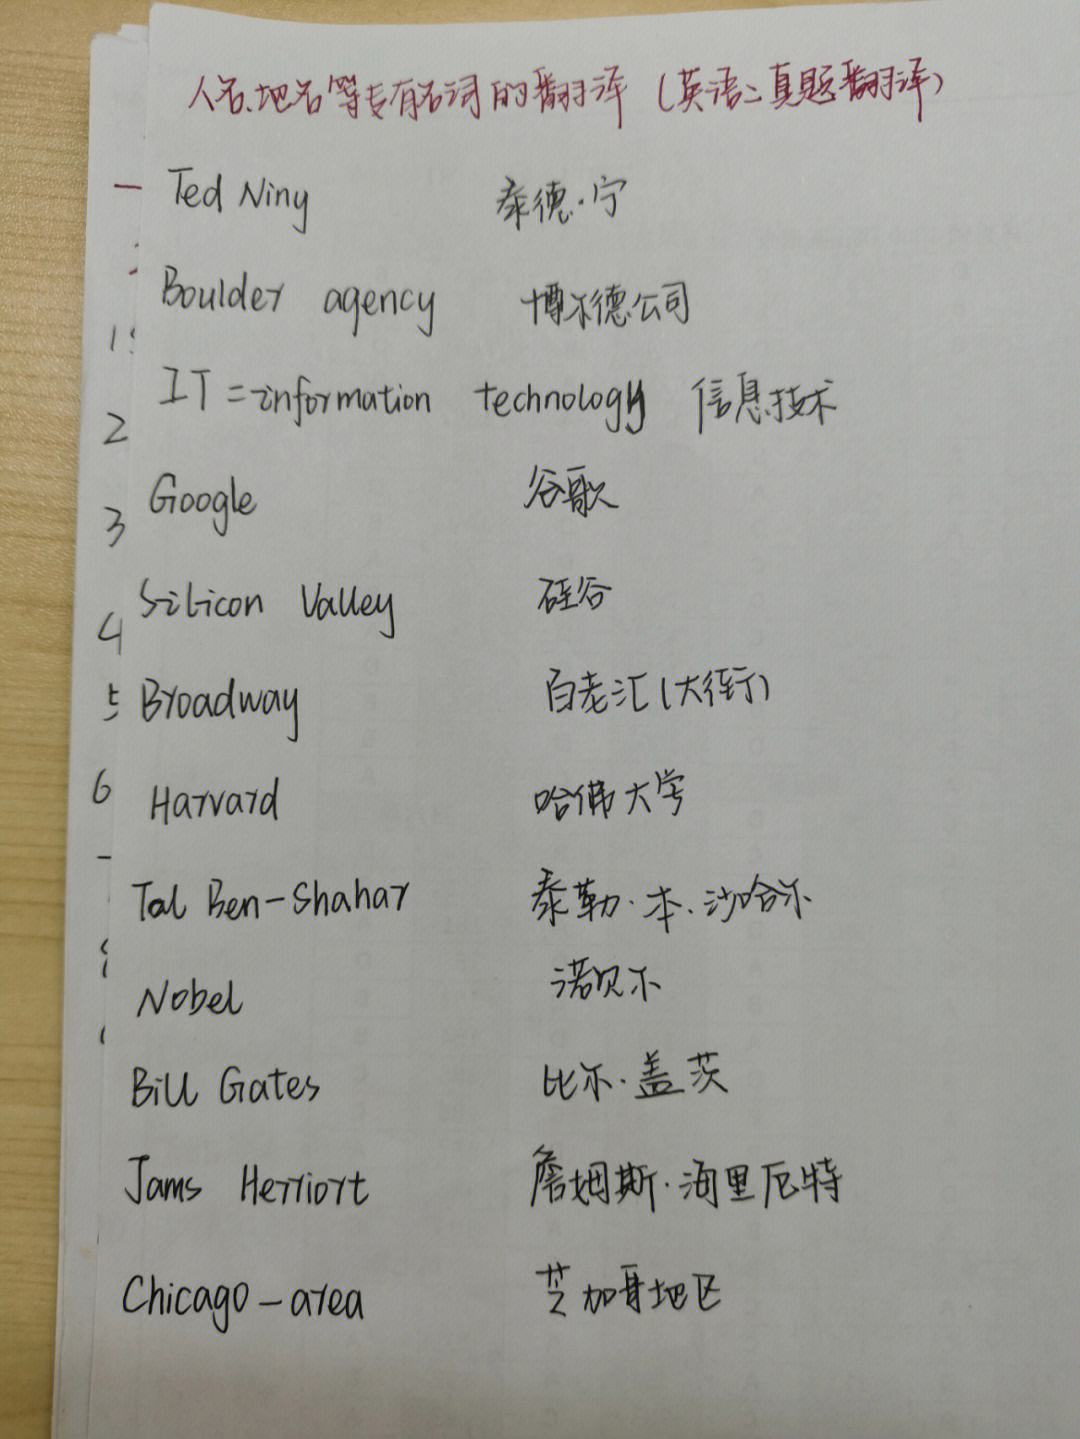 人名、地名等专有名词的翻译(英语二真题翻译)
Ted Niny 泰德·宁
Boulder agency 博尔德公司
IT=information technology 信息技术
Google 谷歌
Silicon Valley 硅谷
Broadway 百老汇(大街)
Harvard 哈佛大学
Tal Ben-Shahar 泰勒·本·沙哈尔
Nobel 诺贝尔
Bill Gates 比尔·盖茨
Jams Herriort 詹姆斯·海里厄特
Chicago-area 芝加哥地区
2
3
4
5
6